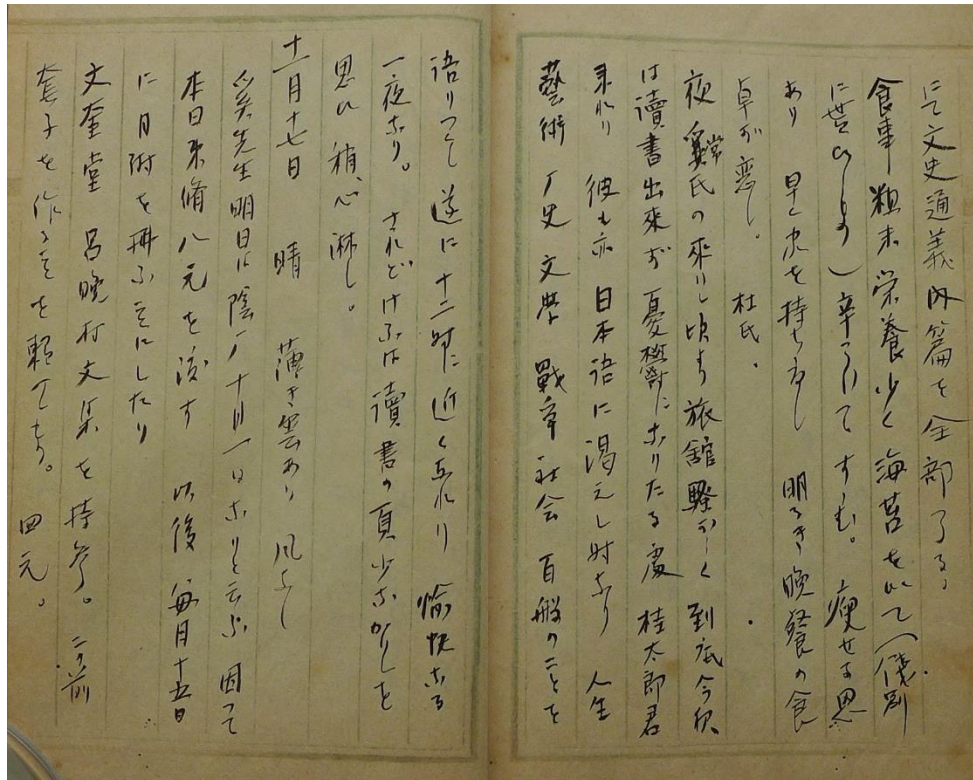 にて文史通義内篇を全部了る。
食事粗末栄養少く海苔を以て(餞別
に貰ひしもの)辛うじてすゝむ。瘦せる思
あり 早く家を持ちたし 明るき晩餐の食
卓が恋し。 杜氏.
夜奚氏の来りし頃より旅舘騒がしく到底今夜
は讀書出來ず憂欝になりたる処桂太郎君
来れり 彼も亦日本語に渇えし時なり 人生
藝術 歴史 文學 戰争 社会 百般のことを
語りつくし遂に十二時に近く至れり 愉快なる
一夜なり。 されどけふは讀書の頁少なかりしを
思ひ稍〻心淋し。
十一月十七日 晴 薄き雲あり 風なし
奚先生明日は陰歴十月一日なりと云ふ 因つて
本日束脩八元を渡す 以後毎月十五日
に月謝を拂ふことにしたり
文奎堂 呂晩村文集を持参。
套子を作ることを頼みてやる。 四元。